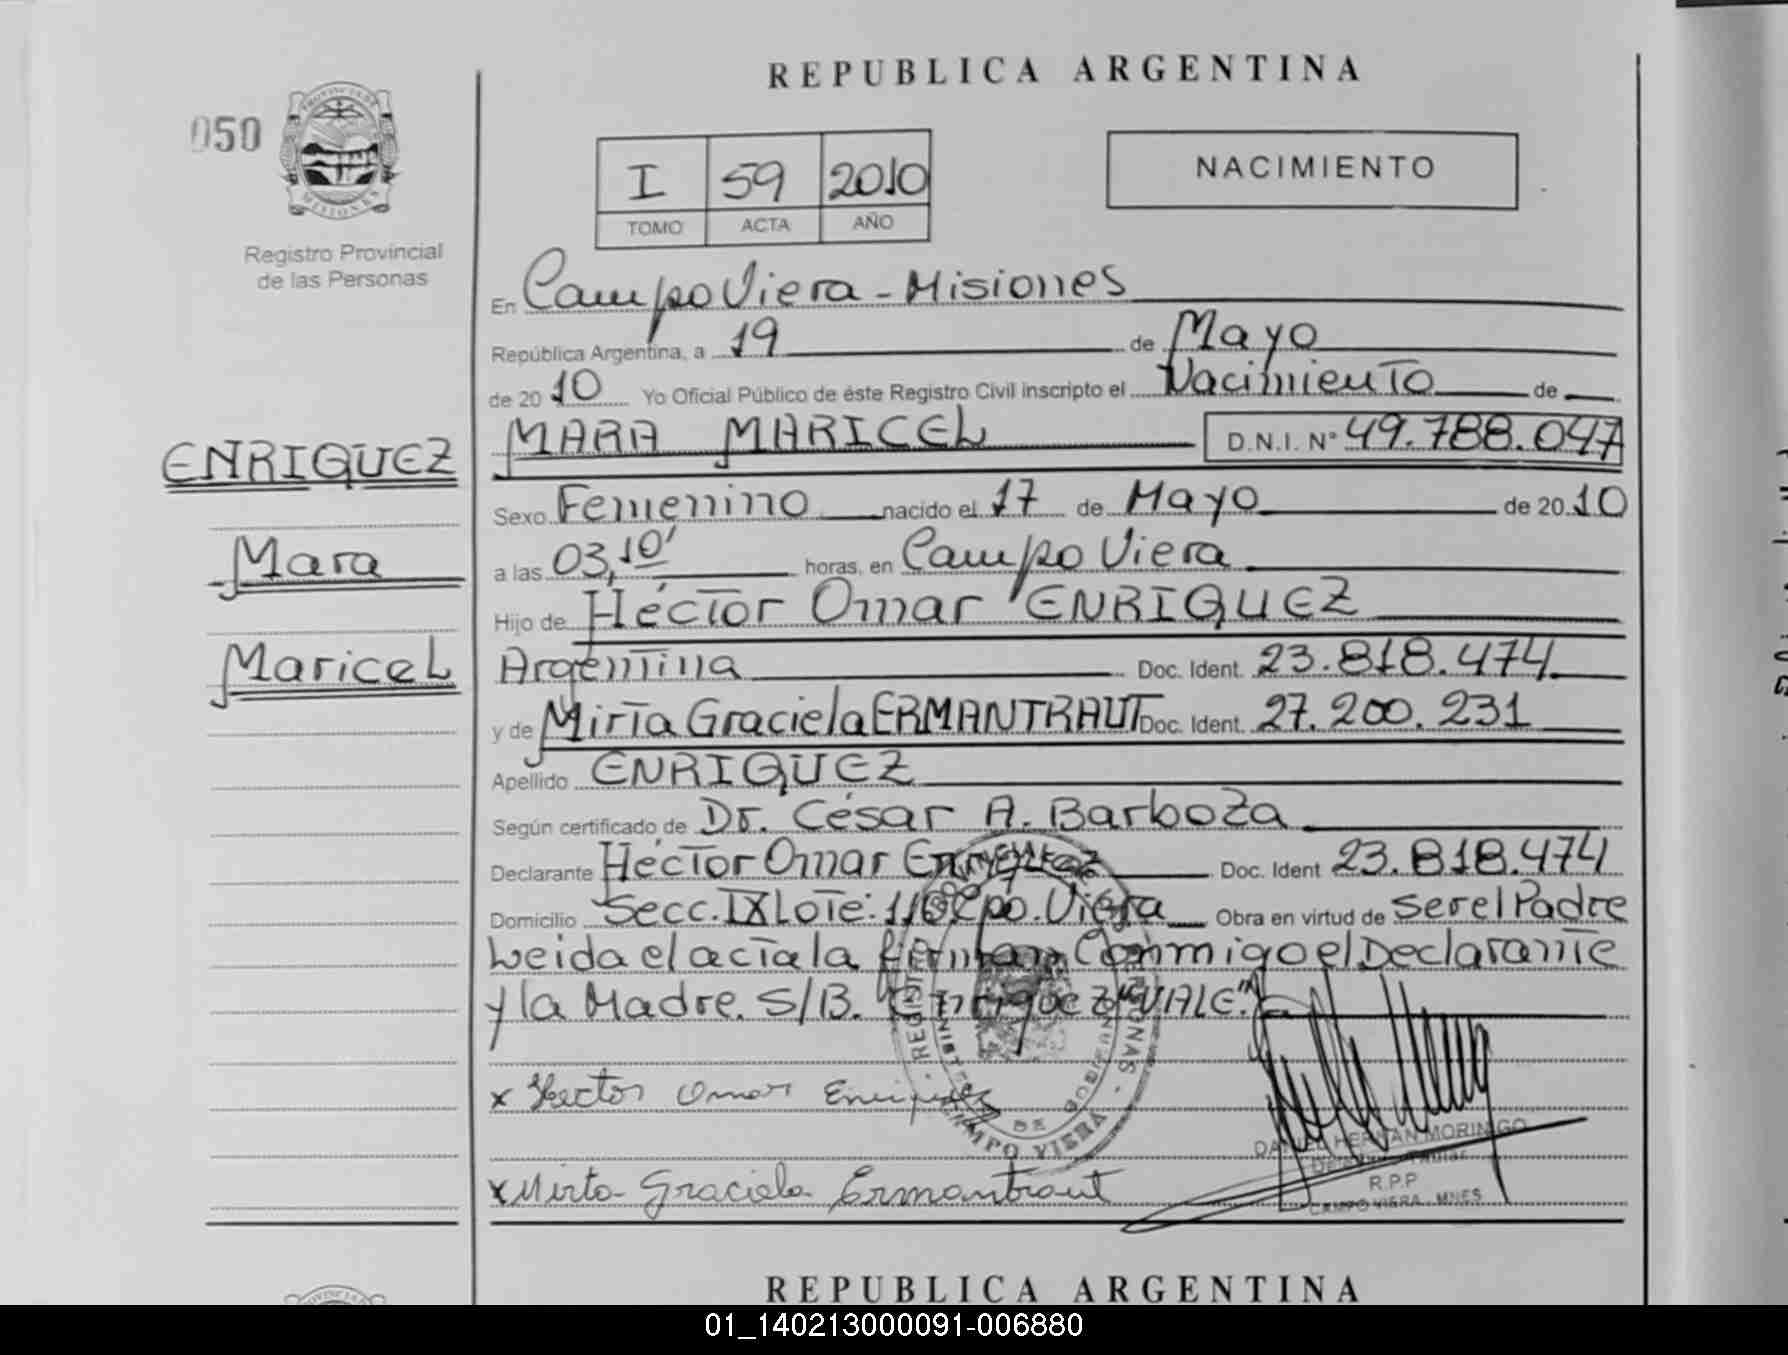 REPUBLICA ARGENTINA
050
PROVINCIA DE
MISIONES
Registro Provincial
de las Personas
I 59 2010
TOMO ACTA AÑO
NACIMIENTO
En Campo Viera - Misiones
República Argentina, a 19 de Mayo
de 2010 Yo Oficial Público de éste Registro Civil inscripto el Nacimiento de
ENRIQUEZ
Mara
Maricel
MARA MARICEL D.N.I. Nº 49.788.047
Sexo Femenino nacido el 17 de Mayo de 2010
a las 03,10' horas, en Campo Viera
Hijo de Héctor Omar ENRIQUEZ
Argentina Doc. Ident. 23.818.474
y de Mirta Graciela ERMANTRAUT Doc. Ident. 27.200.231
Apellido ENRIQUEZ
Según certificado de Dr. César A. Barboza
Declarante Héctor Omar Enriquez Doc. Ident 23.818.474
Domicilio Secc. IX Lote: Cpo. Viera Obra en virtud de ser el Padre
Leida el acta la firman Conmigo el Declarante
y la Madre. S/B. Enriquez "VALE".
x Hector Omar Enriquez
x Mirta Graciela Ermantraut
CAMPO VIERA
DANIEL HERNAN MORINIGO
R.P.P
CAMPO VIERA - MNES
REPUBLICA ARGENTINA
01_140213000091-006880